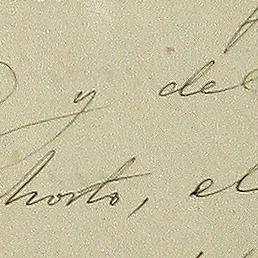 y del
horto, el